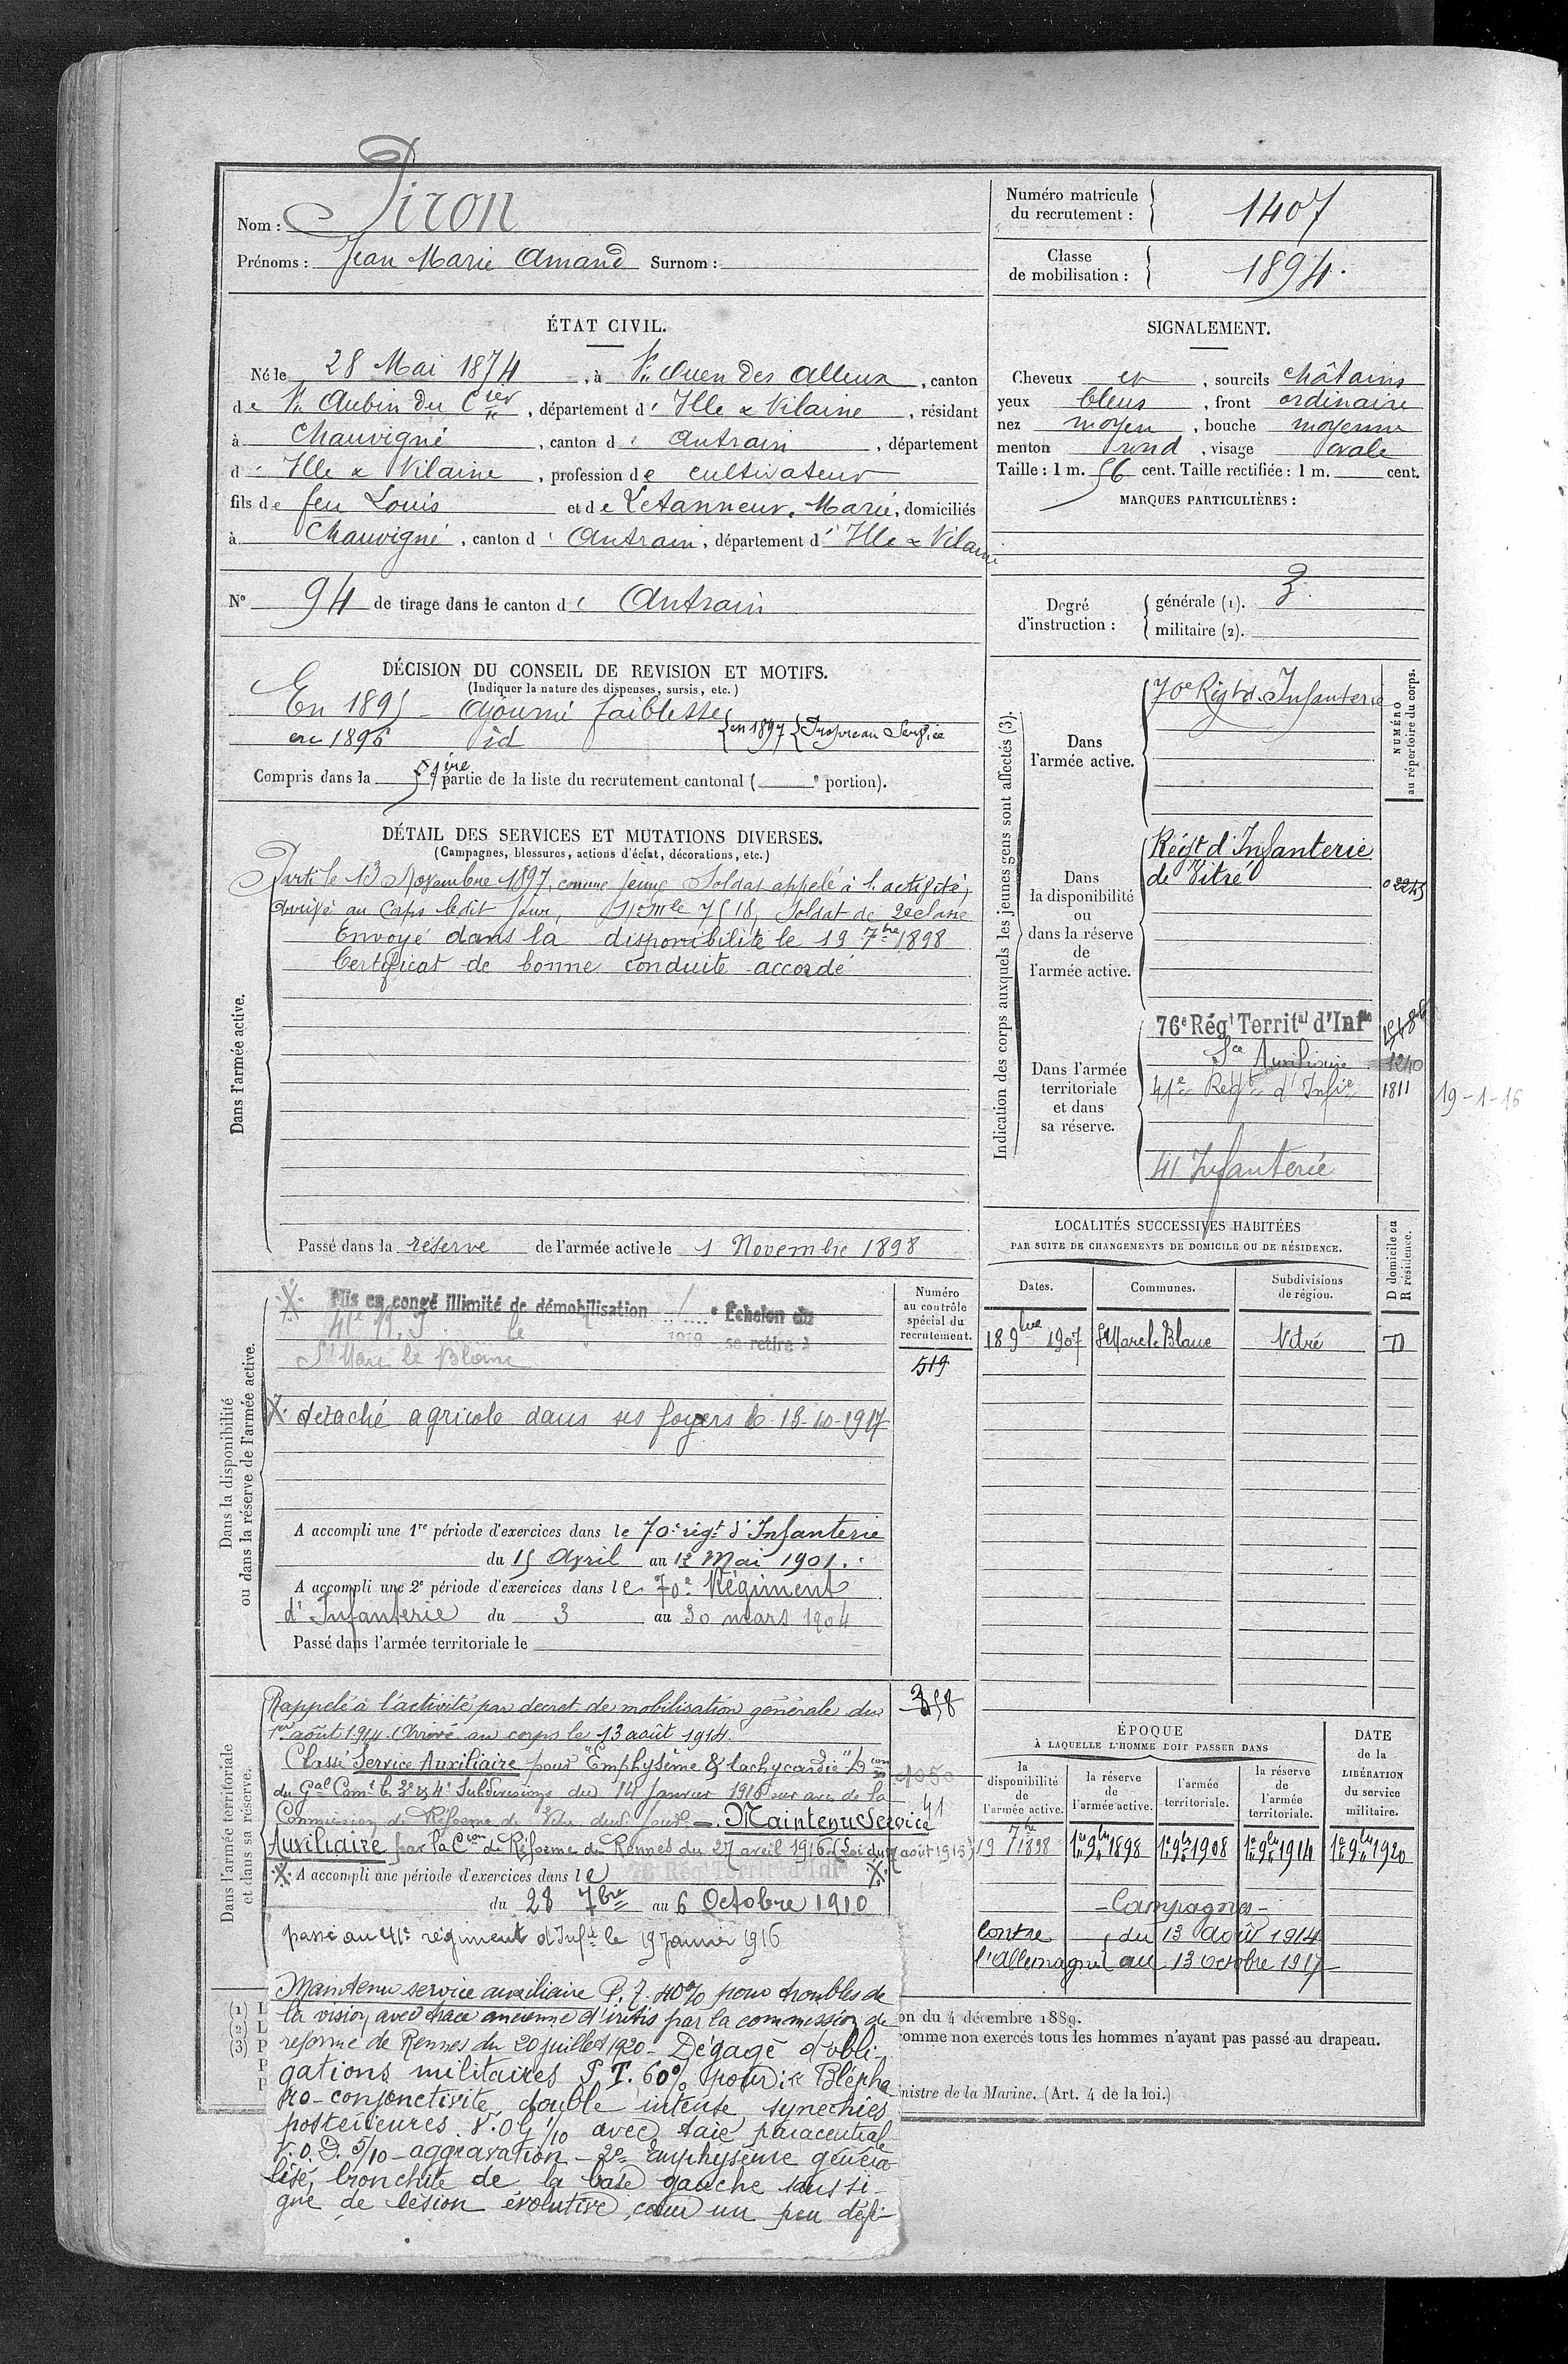 Nom : Piron
Prénoms : Jean Marie Amand Surnom :
Numéro matricule
du recrutement :
1407
Classe
de mobilisation :
1894.
ÉTAT CIVIL.
Né le 28 Mai 1874, à St Ouen des Alleux, canton
de St Aubin du Cier, département d'Ille & Vilaine, résidant
à Chauvigné, canton d'Antrain, département
d'Ille & Vilaine, profession de cultivateur
fils de feu Louis et de Letanneur, Marie, domiciliés
à Chauvigné, canton d'Antrain, département d'Ille & Vilaine
N° 94 de tirage dans le canton d'Antrain
SIGNALEMENT.
Cheveux et, sourcils châtains
yeux bleus, front ordinaire
nez moyen, bouche moyenne
menton rond, visage ovale
Taille : 1 m. 56 cent. Taille rectifiée : 1 m. cent.
MARQUES PARTICULIÈRES :
Degré
d'instruction :
générale (1). 3
militaire (2).
DÉCISION DU CONSEIL DE REVISION ET MOTIFS.
(Indiquer la nature des dispenses, sursis, etc.)
En 1895 - Ajourné faiblesse
en 1896 id en 1897 Propre au Service
Compris dans la 1ère partie de la liste du recrutement cantonal ( e portion).
DÉTAIL DES SERVICES ET MUTATIONS DIVERSES.
(Campagnes, blessures, actions d'éclat, décorations, etc.)
Dans l'armée active.
Parti le 13 Novembre 1897, comme jeune Soldat appelé à l'activité,
arrivé au Corps ledit jour, No mle 7518, Soldat de 2e classe
Envoyé dans la disponibilité le 19 7bre 1898
Certificat de bonne conduite accordé
Passé dans la réserve de l'armée active le 1 Novembre 1898
Indication des corps auxquels les jeunes gens sont affectés (3).
NUMÉRO
au répertoire du corps.
Dans
l'armée active.
70e Régt d'Infanterie
Dans
la disponibilité
ou
dans la réserve
de
l'armée active.
Régt d'Infanterie
de Vitré
02245
Dans l'armée
territoriale
et dans
sa réserve.
76e Régt Territal d'Infie
Sce Auxiliaire 1240
41e Régt d'Infie 1811
19-1-16
41 Infanterie
LOCALITÉS SUCCESSIVES HABITÉES
PAR SUITE DE CHANGEMENTS DE DOMICILE OU DE RÉSIDENCE.
Dates.
Communes.
Subdivisions
de région.
D domicile ou
R résidence.
18 9bre 1907 St Marc le Blanc Vitré D
Dans la disponibilité
ou dans la réserve de l'armée active.
Numéro
au contrôle
spécial du
recrutement.
519
Mis en congé illimité de démobilisation Echelon du
41e R.I. le 1919 se retire à
St Marc le Blanc
X. détaché agricole dans ses foyers le 13-10-1917
A accompli une 1re période d'exercices dans le 70e régt d'Infanterie
du 15 Avril au 12 Mai 1901.
A accompli une 2e période d'exercices dans le 70e Régiment
d'Infanterie du 3 au 30 mars 1904
Passé dans l'armée territoriale le
Dans l'armée territoriale
et dans sa réserve.
Rappelé à l'activité par decret de mobilisation générale du
1er août 1914. Arrivé au corps le 13 août 1914.
Classé Service Auxiliaire pour "Emphysème & tachycardie" Don
du Gal Comt les 3e & 4e Subdivisions du 14 Janvier 1916 sur avis de la
Commission de Réforme de Vitré dudt jour. - Maintenu Service
Auxiliaire par la Con de Réforme de Rennes du 27 avril 1916 (Loi du 17 août 1915)
1050
41
X. A accompli une période d'exercices dans le 76 Rég Territ d'Inf X.
du 28 7bre au 6 Octobre 1910
passé au 41e régiment d'Infie le 19 Janvier 1916
Maintenu service auxiliaire P.T. 40% pour troubles de
la vision avec trace ancienne d'iritis par la commission de
reforme de Rennes du 20 juillet 1920 - Dégagé d'obli-
gations militaires P.T. 60% pour : 1° Blépha
ro-conjonctivite double intense synechies
posterieures V.O.G 1/10 avec taie paracentrale
V.O.D. 5/10 - aggravation - 2° Emphysème généra
lisé, bronchite de la base gauche sans si-
gne de lésion évolutive, cœur un peu défi-
ÉPOQUE
À LAQUELLE L'HOMME DOIT PASSER DANS
la
disponibilité
de
l'armée active.
la réserve
de
l'armée active.
l'armée
territoriale.
la réserve
de
l'armée
territoriale.
DATE
de la
LIBÉRATION
du service
militaire.
19 7bre 1898 1er 9bre 1898 1er 9bre 1908 1er 9bre 1914 1er 9bre 1920
- Campagne -
Contre du 13 Août 1914
l'Allemagne au 13 Octobre 1917
(1) L
(2) L
(3) P
P
P
on du 4 décembre 1889.
comme non exercés tous les hommes n'ayant pas passé au drapeau.
nistre de la Marine. (Art. 4 de la loi.)